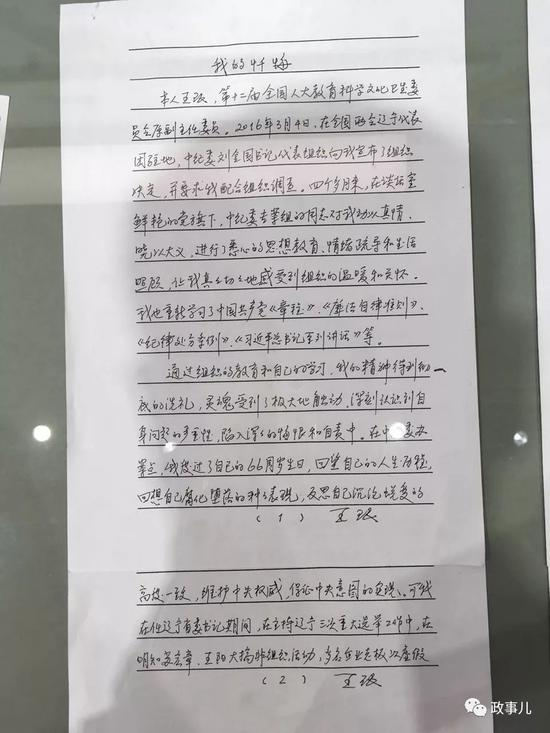 我的忏悔
本人王珉，第十二届全国人大教育科学文化卫生委
员会原副主任委员。2016年3月4日，在全国两会辽宁代表
团驻地，中纪委刘金国书记代表组织向我宣布了组织
决定，并要求我配合组织调查。四个多月来，在谈话室
鲜艳的党旗下，中纪委专案组的同志对我动以真情、
晓以大义，进行了悉心的思想教育、情绪疏导和生活
照顾，让我真真切切地感受到组织的温暖和关怀。
我也重新学习了中国共产党《章程》、《廉洁自律准则》、
《纪律处分条例》、《习近平总书记系列讲话》等。
通过组织的教育和自己的学习，我的精神得到彻
底的洗礼，灵魂受到了极大地触动，深刻认识到自
身问题的严重性，陷入深深的悔恨和自责中。在中纪委办
案点，我度过了自己的66周岁生日，回望自己的人生历程，
回想自己腐化堕落的种种表现，反思自己沉沦蜕变的
（1） 王珉
高度一致，维护中央权威，保证中央意图的实现。可我
在任辽宁省委书记期间，在主持辽宁三次重大选举工作中，在
明知苏宏章、王阳大搞非组织活动，多名企业老板
（2） 王珉
政事儿